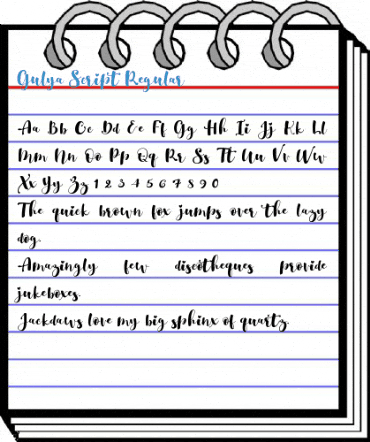 Gulya Script Regular
Aa Bb Cc Dd Ee Ff Gg Hh Ii Jj Kk Ll
Mm Nn Oo Pp Qq Rr Ss Tt Uu Vv Ww
Xx Yy Zz 1 2 3 4 5 6 7 8 9 0
The quick brown fox jumps over the lazy
dog.
Amazingly few discotheques provide
jukeboxes.
Jackdaws love my big sphinx of quartz.